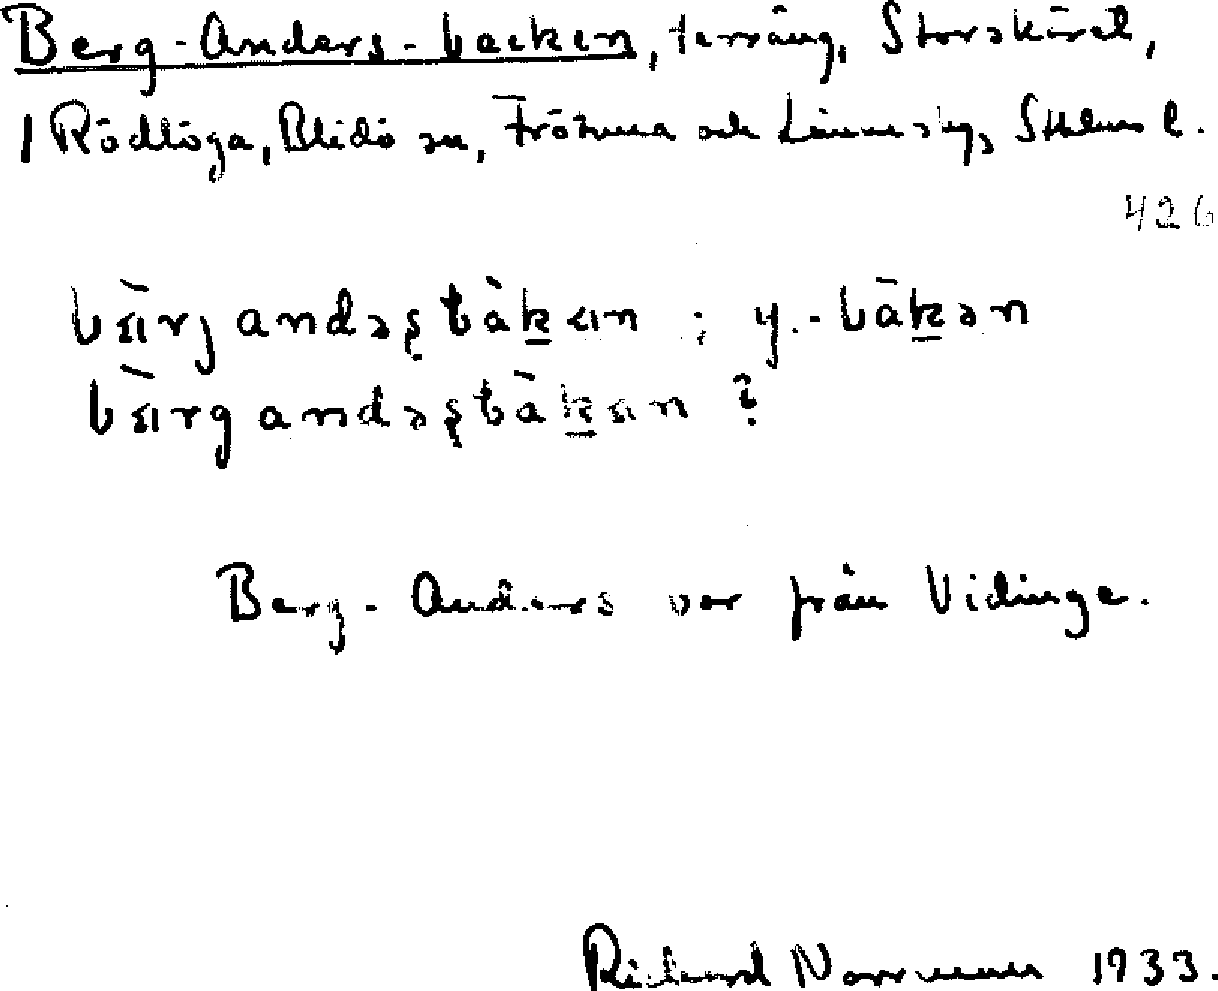 Berg-Anders-backen, terräng, Storskäret,
Rödlöga, Blidö sn, Frötuna och Länna skg, Sthlms l.
426
bärjandəʂbakan ; y.-bakən
bärgandəʂbakan ?
Berg-Anders var från Vidinge.
Rickard Norrman 1933.